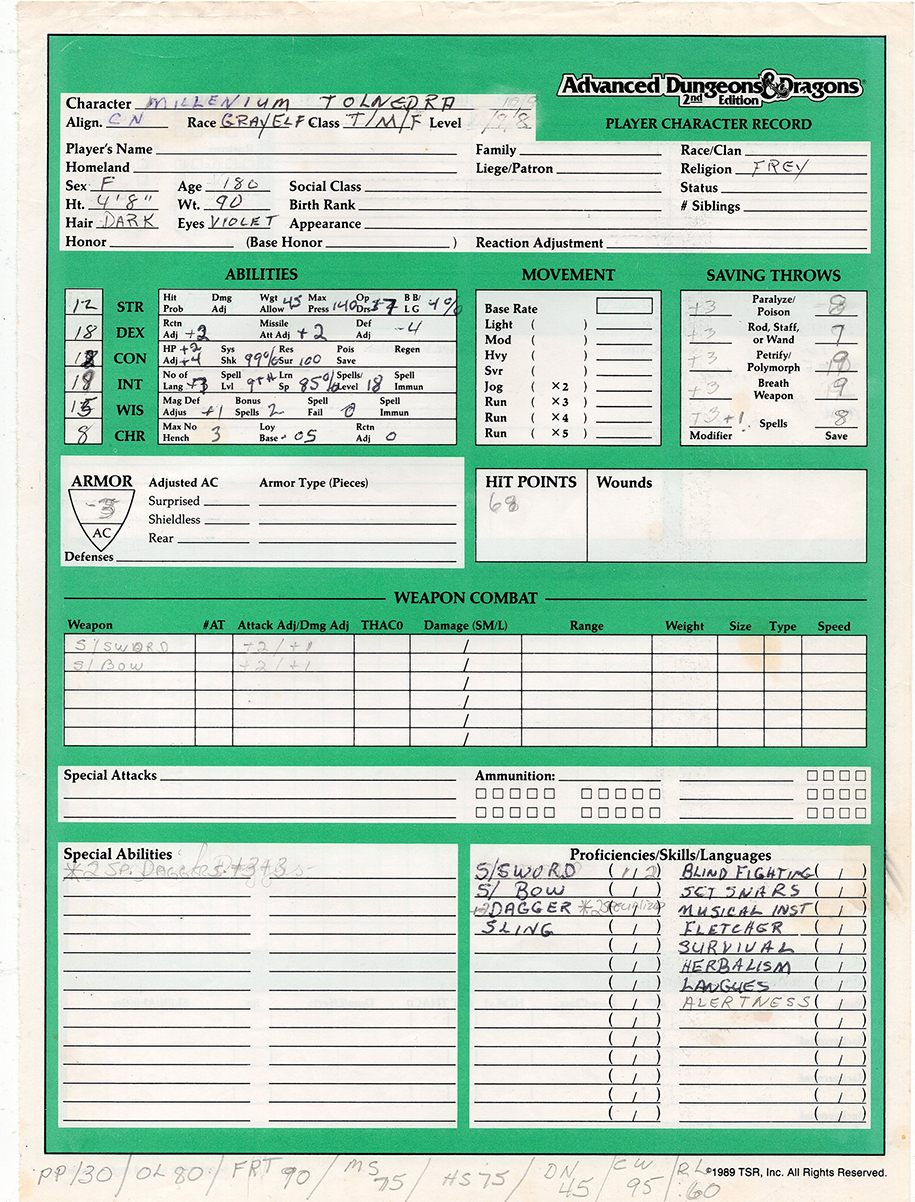 Advanced Dungeons & Dragons®
2nd Edition
PLAYER CHARACTER RECORD
Character MILLENIUM TOLNEDRA
Align. CN Race GRAYELF Class T/M/F Level
Player's Name Family Race/Clan
Homeland Liege/Patron Religion FREY
Sex F Age 180 Social Class Status
Ht. 4'8" Wt. 90 Birth Rank # Siblings
Hair DARK Eyes VIOLET Appearance
Honor (Base Honor ) Reaction Adjustment
ABILITIES
12 STR Hit Prob Dmg Adj Wgt Allow 45 Max Press 140 Op Drs B B/ L G 4%
18 DEX Rctn Adj +2 Missile Att Adj +2 Def Adj -4
CON HP Adj +2 +4 Sys Shk 99% Res Sur 100 Pois Save Regen
INT No of Lang Spell Lvl 9TH Lrn Sp 85% Spells/ Level 18 Spell Immun
WIS Mag Def Adjus +1 Bonus Spells 2 Spell Fail 0 Spell Immun
8 CHR Max No Hench 3 Loy Base 05 Rctn Adj 0
MOVEMENT
Base Rate
Light ( )
Mod ( )
Hvy ( )
Svr ( )
Jog ( ×2 )
Run ( ×3 )
Run ( ×4 )
Run ( ×5 )
SAVING THROWS
+3 Paralyze/ Poison
+3 Rod, Staff, or Wand 7
+3 Petrify/ Polymorph
+3 Breath Weapon 9
+3 +1 Spells 8
Modifier Save
ARMOR Adjusted AC Armor Type (Pieces)
Surprised
Shieldless
AC Rear
Defenses
HIT POINTS Wounds
68
WEAPON COMBAT
Weapon #AT Attack Adj/Dmg Adj THAC0 Damage (SM/L) Range Weight Size Type Speed
S/SWORD +2/+1 /
S/BOW +2/+1 /
/
/
/
/
Special Attacks Ammunition:
Special Abilities
*2 SP. DAGGERS +3+3
Proficiencies/Skills/Languages
S/SWORD ( / 2 ) BLIND FIGHTING ( / )
S/ BOW ( / ) SET SNARS ( / )
DAGGER *2 specialized MUSICAL INST ( / )
SLING ( / ) FLETCHER ( / )
( / ) SURVIVAL ( / )
( / ) HERBALISM ( / )
( / ) LANGUES ( / )
( / ) ALERTNESS ( / )
( / ) ( / )
( / ) ( / )
( / ) ( / )
( / ) ( / )
( / ) ( / )
( / ) ( / )
PP/30 / OL 80 / FRT 90 / MS 75 / HS 75 / DN 45 / CW 95 / RL 60
©1989 TSR, Inc. All Rights Reserved.